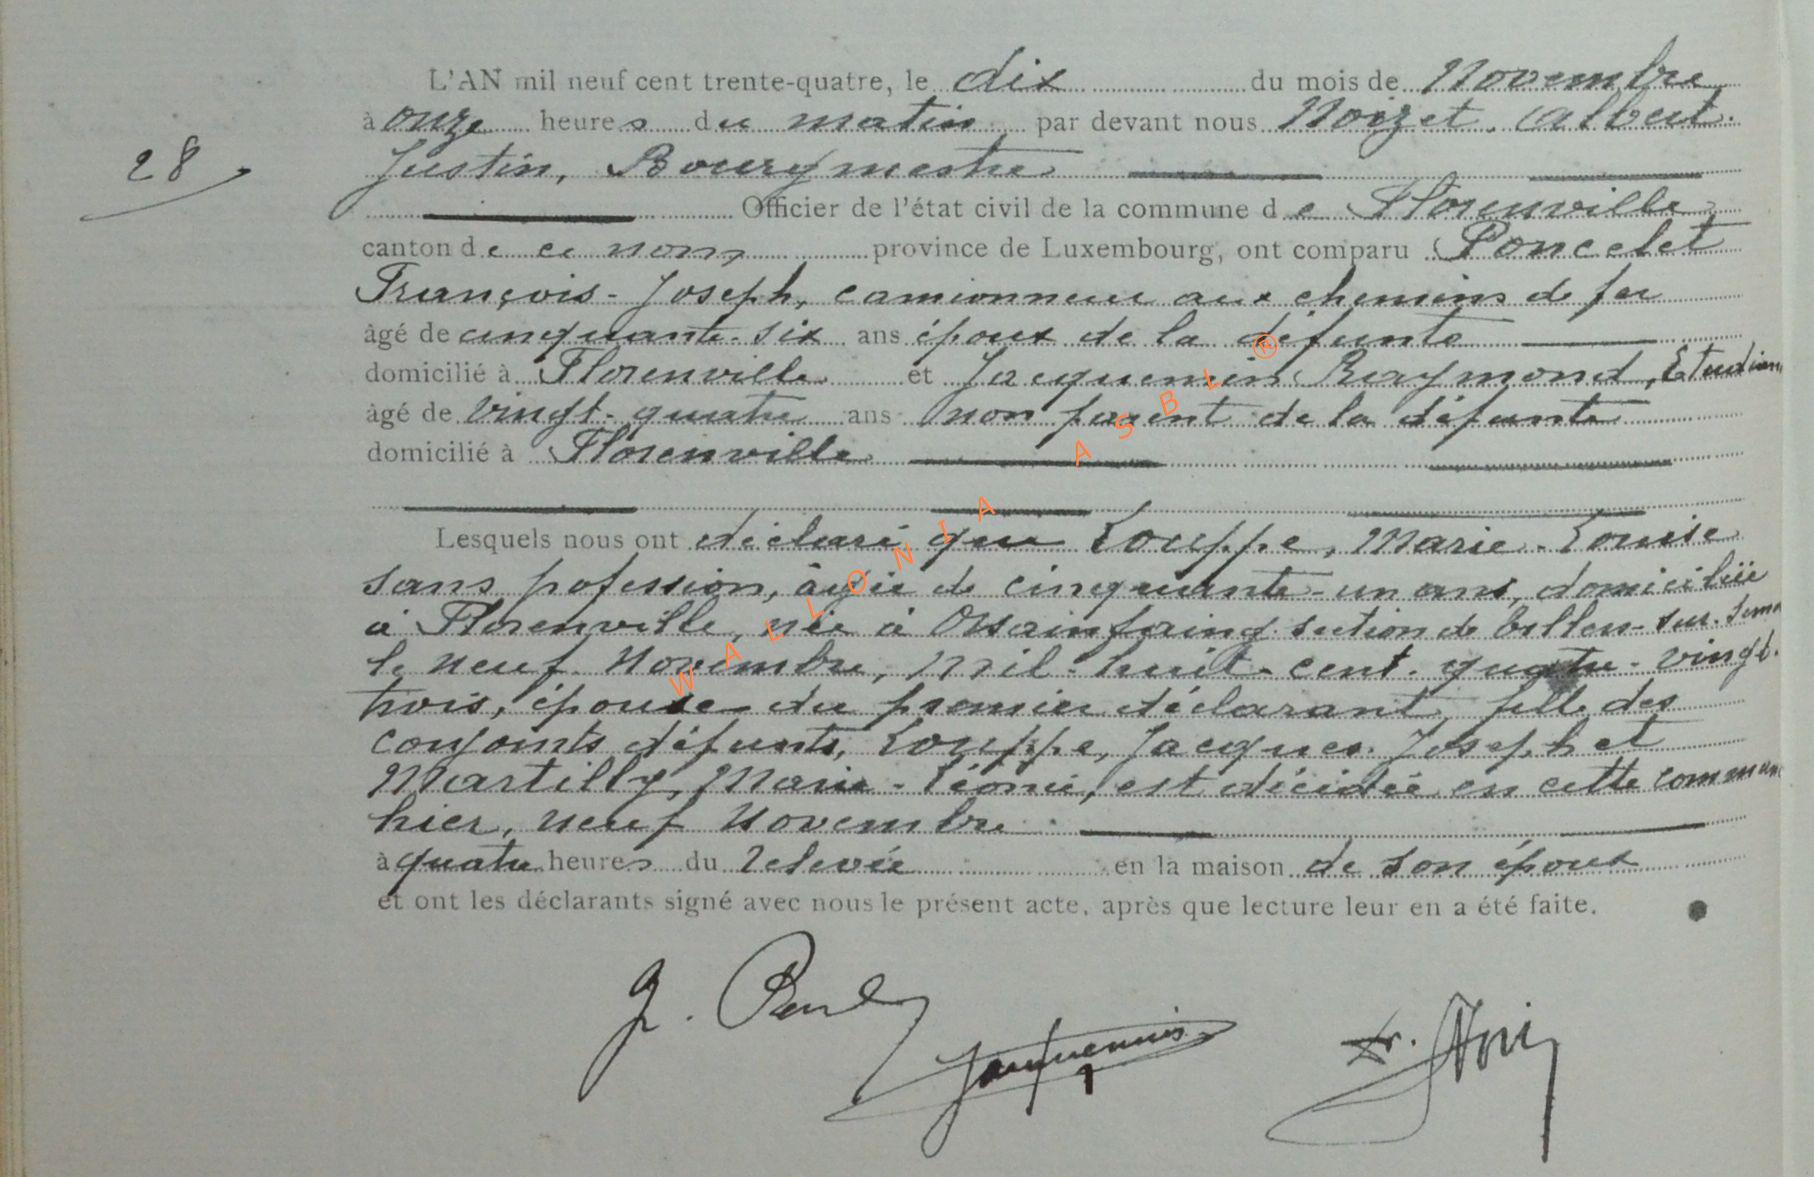 L'AN mil neuf cent trente-quatre, le dix du mois de Novembre
à onze heures du matin par devant nous Noizet Albert.
28
Justin, Bourgmestre
Officier de l'état civil de la commune de Florenville
canton de ce nom, province de Luxembourg, ont comparu Poncelet
François-Joseph, camionneur aux chemins de fer
âgé de cinquante-six ans époux de la défunte
domicilié à Florenville et Jacquemin Raymond, Etudiant
âgé de vingt-quatre ans non parent de la défunte
domicilié à Florenville
Lesquels nous ont déclaré que Louppe, Marie-Louise
sans pofession, âgée de cinquante-un ans, domiciliée
à Florenville, née à section de sur
le neuf Novembre, Mil-huit-cent-quatre-vingt-
trois, épouse du premier déclarant, fille des
conjoints défunts, Louppe, Jacques-Joseph et
Martilly, Marie-Léonie, est décédée en cette commune
hier, neuf Novembre
à quatre heures du relevée en la maison de son époux
et ont les déclarants signé avec nous le présent acte, après que lecture leur en a été faite.
Jacquemin
WALLONIA ASBL ®